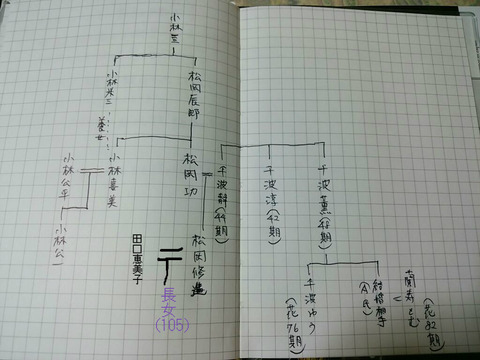 小林一三
小林米三
養女
松岡辰郎
小林公平
小林喜美
松岡功
千波静(44期)
千波淳(42期)
千波薫(48期)
小林公一
田口惠美子
松岡修造
長女
(105)
千波ゆう
(花76期)
結婚相手
(A氏)
蘭寿とむ
(花82期)